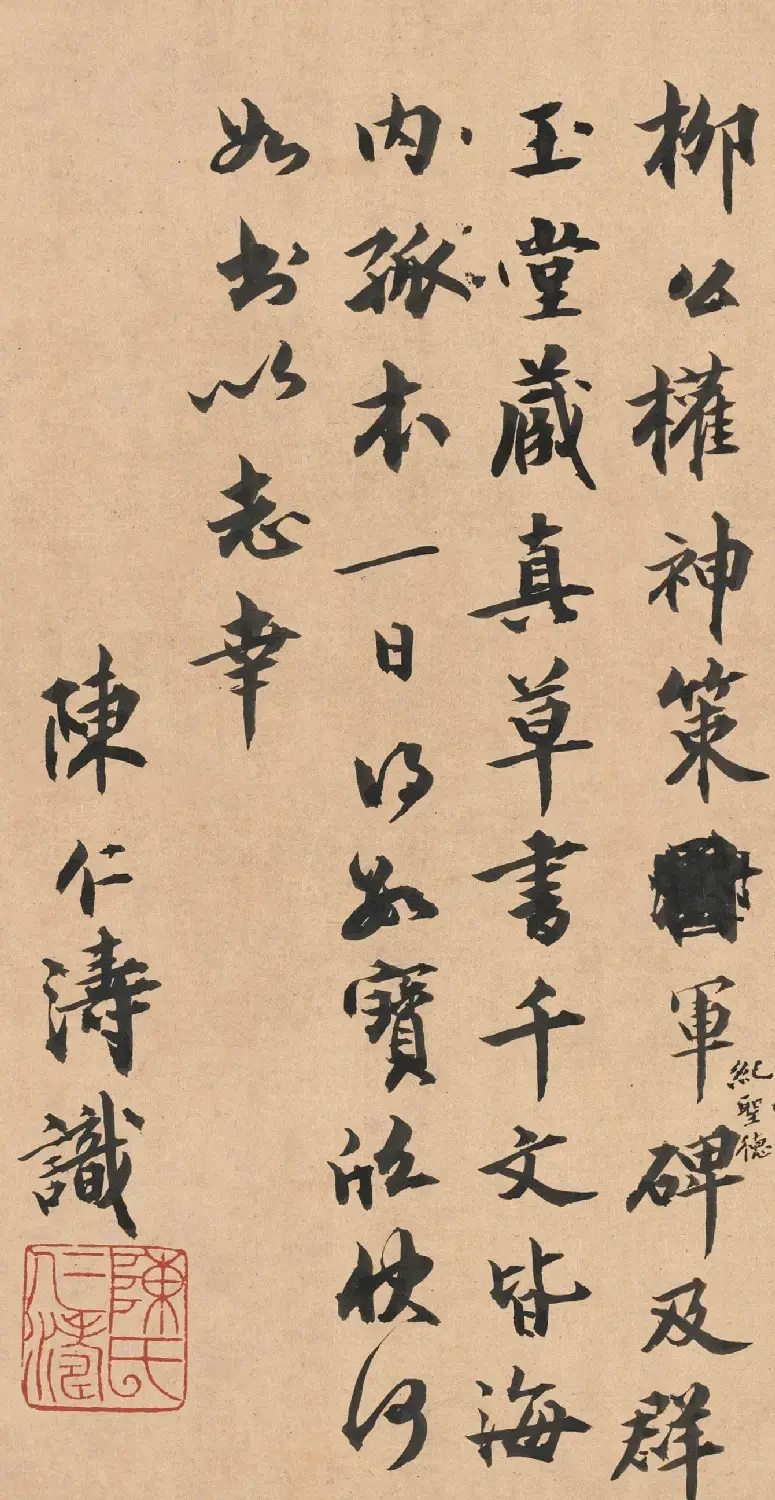 柳公權神策軍碑及群
紀聖德
玉堂藏真草書千文皆海
内孤本一日得寶欣快何
如書以志幸
陳仁濤識
陳氏仁濤